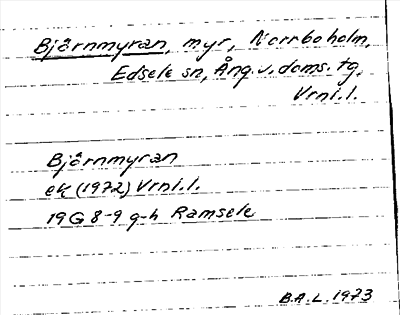 Björnmyran, myr, Norrboholm,
Edsele sn, Ång. v. doms. tg,
Vrnl.l.
Björnmyran
ek (1972) Vrnl.l.
19G 8-9 g-h Ramsele
B.A.L. 1973